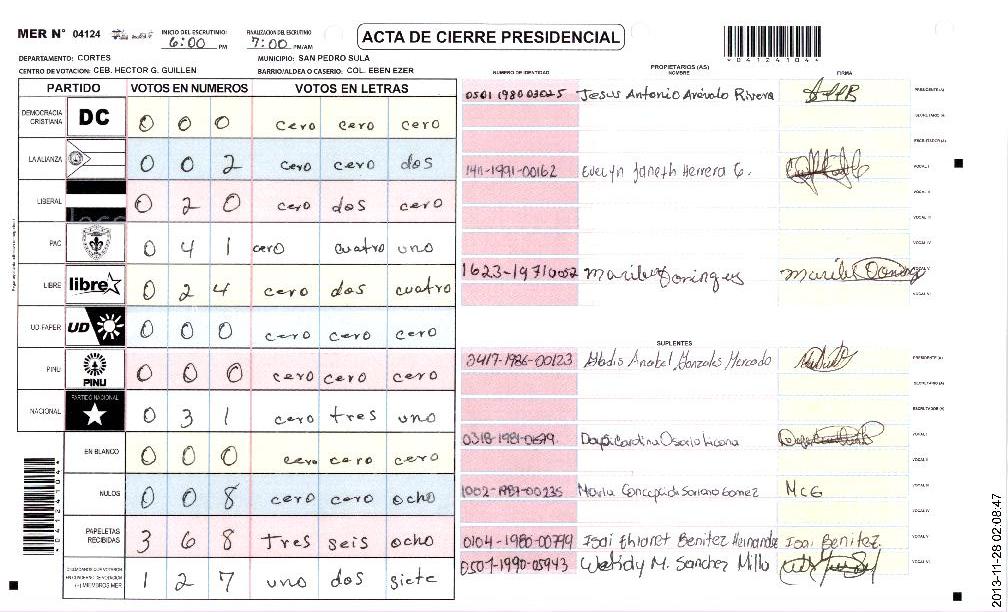 MER N° 04124
INICIO DEL ESCRUTINIO: 6:00 PM
FINALIZACION DEL ESCRUTINIO 7:00 PM/AM
ACTA DE CIERRE PRESIDENCIAL
*04124104*
DEPARTAMENTO: CORTES
MUNICIPIO: SAN PEDRO SULA
CENTRO DE VOTACION: CEB. HECTOR G. GUILLEN
BARRIO/ALDEA O CASERIO: COL. EBEN EZER
PARTIDO VOTOS EN NUMEROS VOTOS EN LETRAS
DEMOCRACIA CRISTIANA DC 0 0 0 cero cero cero
LA ALIANZA 0 0 2 cero cero dos
LIBERAL 0 2 0 cero dos cero
PAC 0 4 1 cero cuatro uno
LIBRE libre 0 2 4 cero dos cuatro
UD FAPER UD 0 0 0 cero cero cero
PINU PINU 0 0 0 cero cero cero
NACIONAL PARTIDO NACIONAL 0 3 1 cero tres uno
EN BLANCO 0 0 0 cero cero cero
NULOS 0 0 8 cero cero ocho
PAPELETAS RECIBIDAS 3 6 8 tres seis ocho
CIUDADANOS QUE VOTARON EN CUADERNO DE VOTACION (+) MIEMBROS MER 1 2 7 uno dos siete
*04124104*
PROPIETARIOS (AS)
NUMERO DE IDENTIDAD NOMBRE FIRMA
0501 1980 03025 Jesus Antonio Arévalo Rivera PRESIDENTE(A)
SECRETARIO(A)
ESCRUTADOR(A)
1411-1991-00162 Evelyn Janeth Herrera G. VOCAL I
VOCAL II
VOCAL III
VOCAL IV
1623-1971 0052 VOCAL V
VOCAL VI
SUPLENTES
0417-1986-00123 Gladis Anabel Gonzales Mercado PRESIDENTE(A)
SECRETARIO(A)
ESCRUTADOR(A)
0318-1981-0699 VOCAL I
VOCAL II
1002-1987-00235 Maria Concepcion Soriano Gomez MCG VOCAL III
VOCAL IV
0104-1980-00799 Isai Benitez Hernandez Isai Benitez VOCAL V
0501-1990-05943 M. Sanchez Milla VOCAL VI
2013-11-28 02:08:47